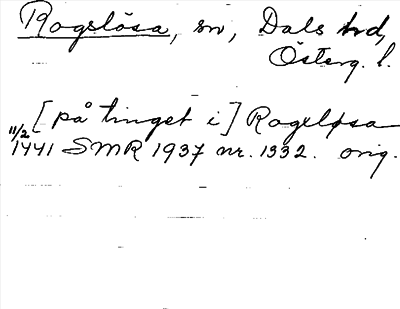 Rogslösa, sn, Dals hd,
Österg. l.
[på tinget i] Rogeløsa
11/2 1441 SMR 1937 nr. 1332. orig.